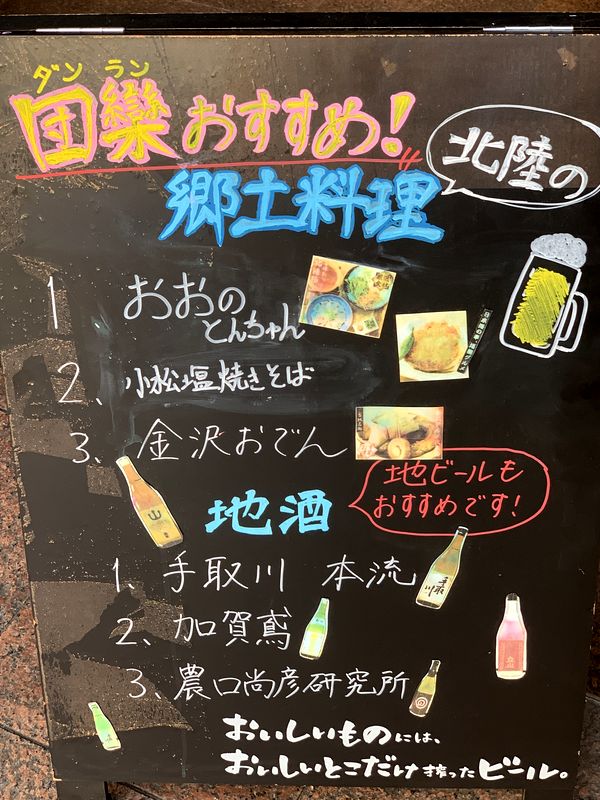 ダンラン
団欒おすすめ!
北陸の
郷土料理
1 おおの
とんちゃん
2、小松塩焼きそば
3、金沢おでん
地ビールも
おすすめです!
地酒
1、手取川 本流
2、加賀鳶
3、農口尚彦研究所
おいしいものには、
おいしいとこだけ搾ったビール。